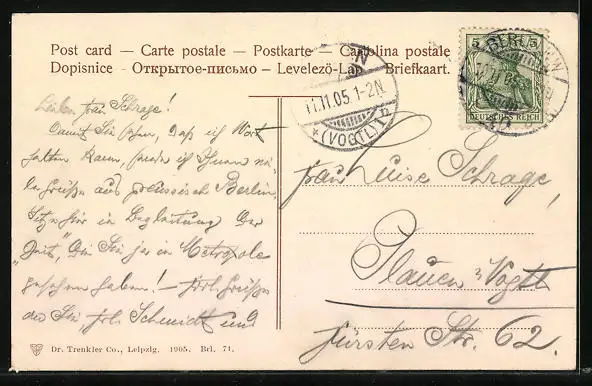 Post card — Carte postale — Postkarte — Cartolina postale
Dopisnice — Открытое-письмо — Levelezö-La — Briefkaart.
5 5
DEUTSCHES REICH
BERLIN
11.11.05
11.11.05. 1-2N
* (VOGTL) *
Lieben Frau Schrage!
Damit Sie sehen, daß ich Wort
halten kann, sende ich Ihnen
Grüße aus preussisch Berlin.
hier in Begleitung der
die Sie ja in Metropole
gesehen haben! —
Frl. Schmidt und
Frau Luise Schrage,
Plauen i/Vogtl
Fürsten Str. 62.
Dr. Trenkler Co., Leipzig. 1905. Brl. 71.